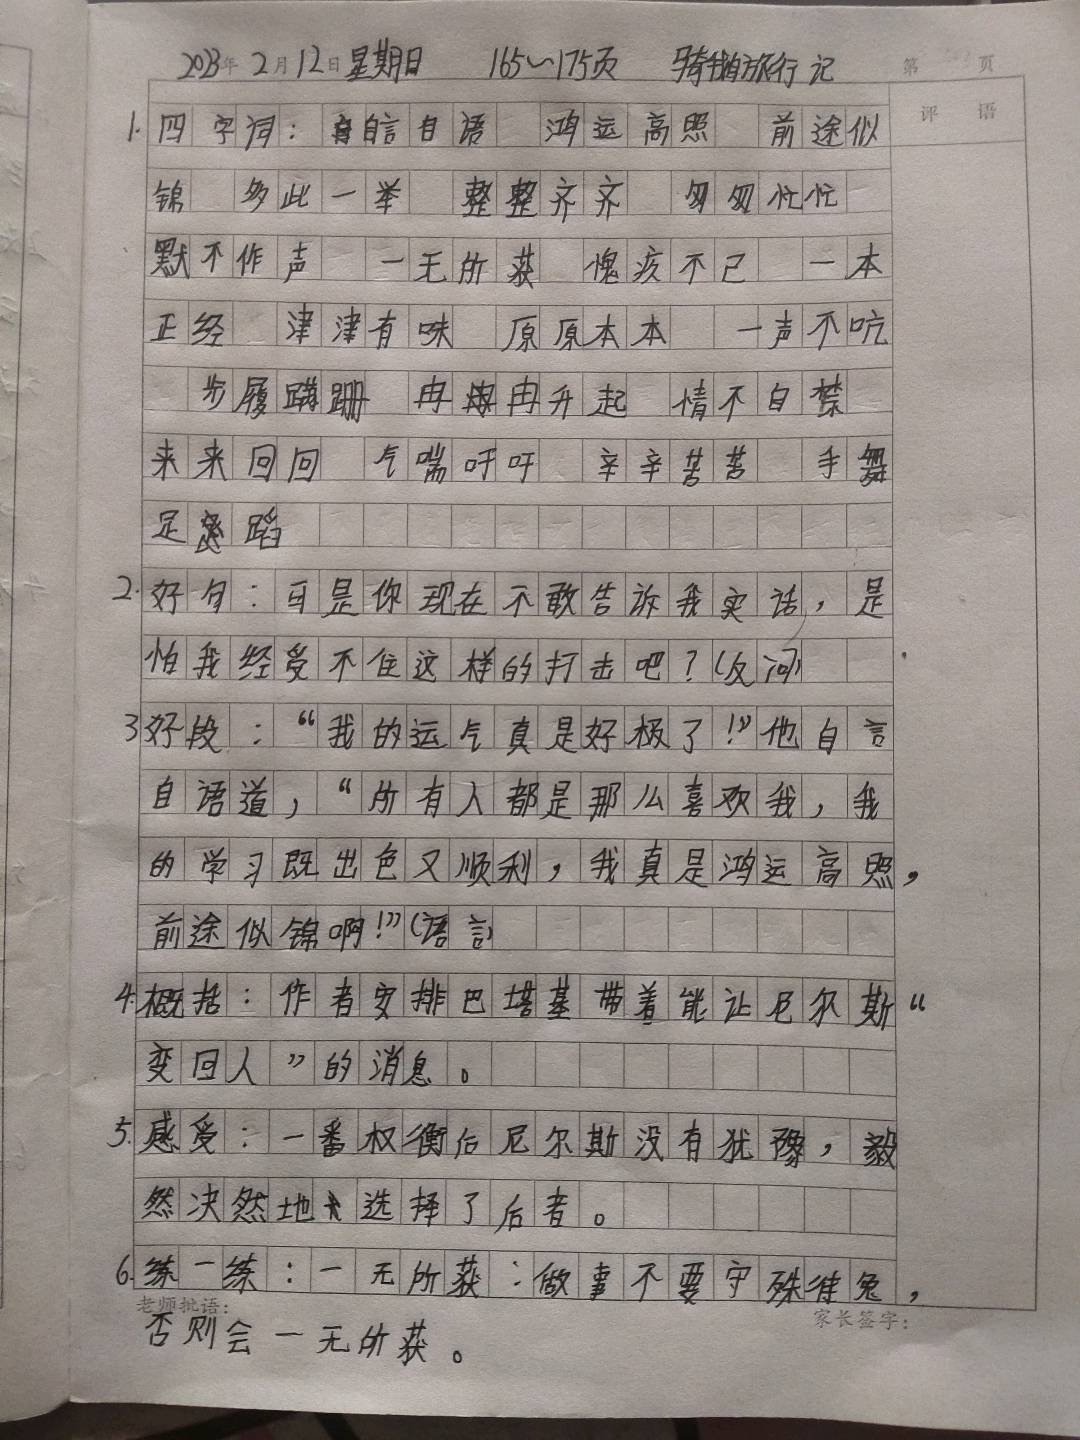 2023年2月12日星期日 165~175页 骑鹅旅行记 第 页
评语
1.四字词：自言自语 鸿运高照 前途似
锦 多此一举 整整齐齐 匆匆忙忙
默不作声 一无所获 愧疚不已 一本
正经 津津有味 原原本本 一声不吭
步履蹒跚 冉冉升起 情不自禁
来来回回 气喘吁吁 辛辛苦苦 手舞
足蹈
2.好句：可是你现在不敢告诉我实话，是
怕我经受不住这样的打击吧？(反问)
3.好段：“我的运气真是好极了！”他自言
自语道，“所有人都是那么喜欢我，我
的学习既出色又顺利，我真是鸿运高照，
前途似锦啊！”(语言)
4.概括：作者安排巴塔基带着能让尼尔斯“
变回人”的消息。
5.感受：一番权衡后尼尔斯没有犹豫，毅
然决然地选择了后者。
6.练一练：一无所获：做事不要守株待兔，
老师批语： 家长签字：
否则会一无所获。